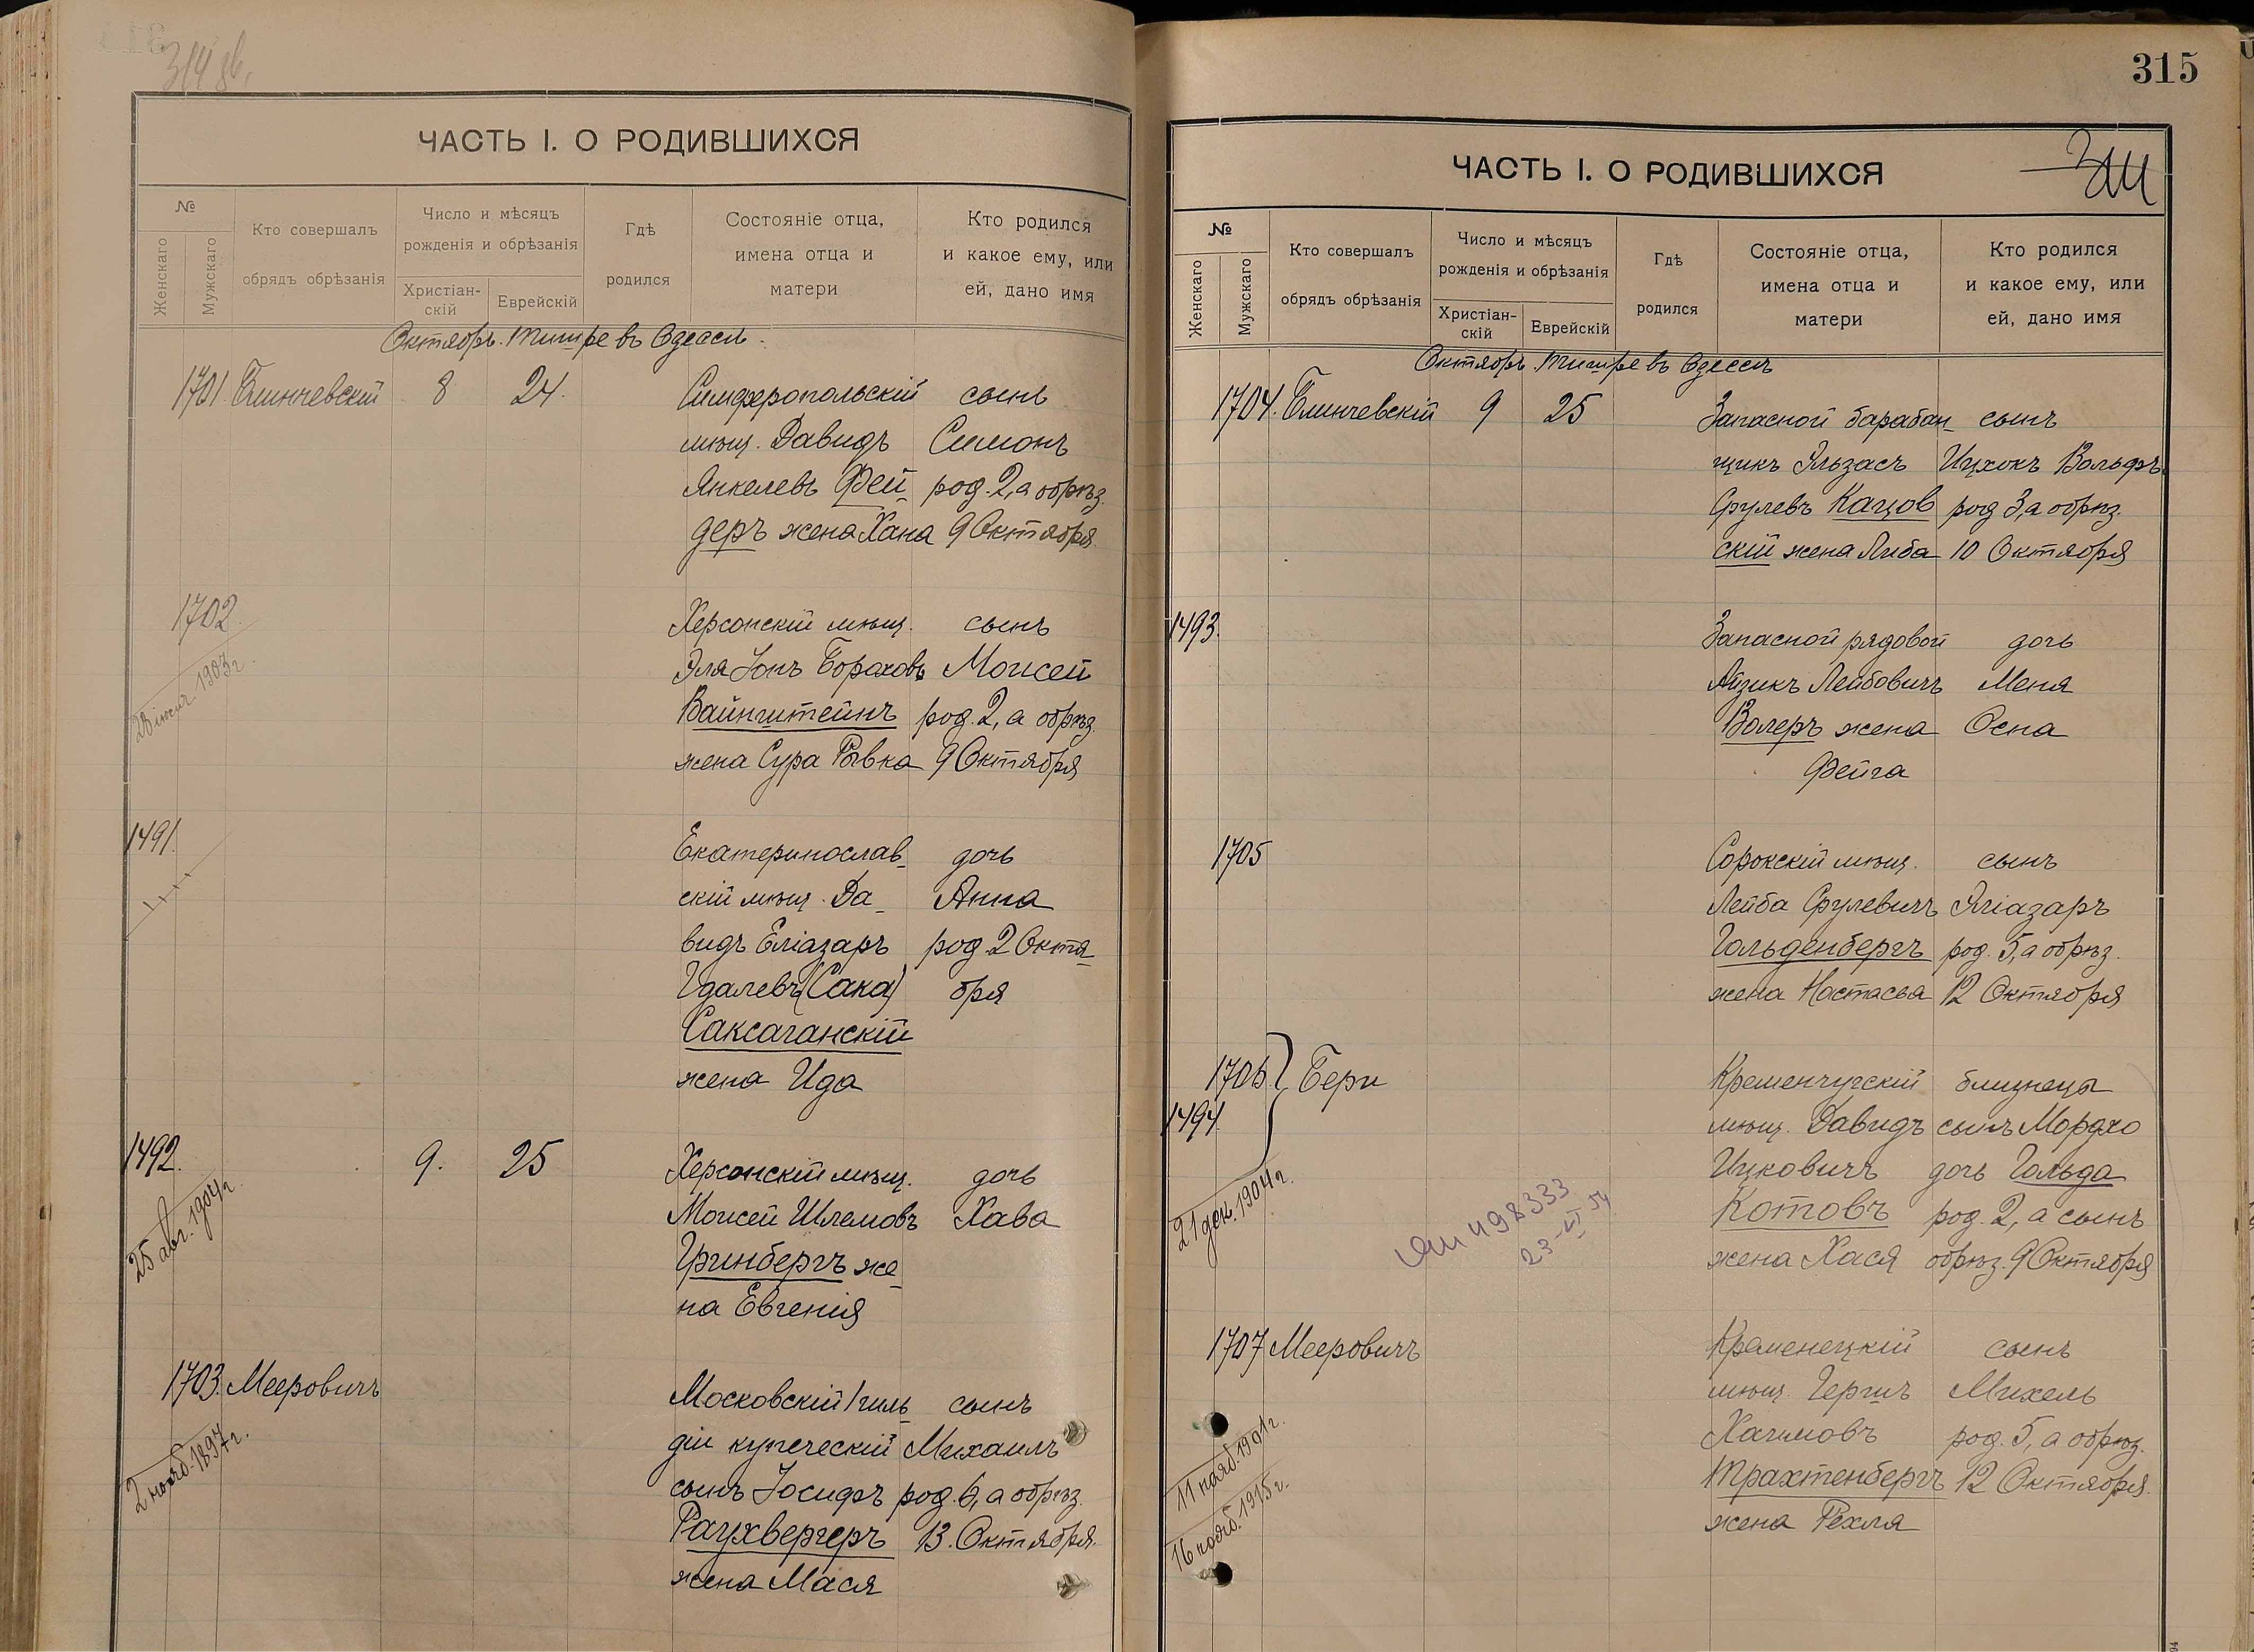 314 об.
ЧАСТЬ I. О РОДИВШИХСЯ
№
Женскаго
Мужскаго
Кто совершалъ
обрядъ обрѣзанія
Число и мѣсяцъ
рожденія и обрѣзанія
Христіан-
скій
Еврейскій
Гдѣ
родился
Состояніе отца,
имена отца и
матери
Кто родился
и какое ему, или
ей, дано имя
Октябрь. Тишре въ Одессѣ.
1701. Блинчевскій 8 24. Симферопольскій сынъ
мѣщ. Давидъ Симонъ
Янкелевъ Фей- род. 2, а обрѣз.
деръ жена Хана 9 Октября.
1702. Херсонскій мѣщ. сынъ
28 іюля 1903 г. Эля Іонъ Бораховъ Моисей
Вайнштейнъ род. 2, а обрѣз.
жена Сура Рывка 9 Октября
1491. Екатеринослав- дочь
скій мѣщ. Да- Анна
видъ Еліазаръ род. 2 Октя-
Удалевъ (Сака) бря
Саксаганскій
жена Ида
1492. 9. 25 Херсонскій мѣщ. дочь
25 авг. 1904 г. Моисей Шлемовъ Хава
Гринбергъ же-
на Евгенія
1703. Мееровичъ Московскій I гиль- сынъ
2 нояб. 1897 г. діи купеческій Михаилъ
сынъ Іосифъ род. 6, а обрѣз.
Раухвергеръ 13. Октября.
жена Мася
315
ЧАСТЬ I. О РОДИВШИХСЯ
№
Женскаго
Мужскаго
Кто совершалъ
обрядъ обрѣзанія
Число и мѣсяцъ
рожденія и обрѣзанія
Христіан-
скій
Еврейскій
Гдѣ
родился
Состояніе отца,
имена отца и
матери
Кто родился
и какое ему, или
ей, дано имя
Октябрь. Тишре въ Одессѣ
1704. Блинчевскій 9 25 Запасной барабан- сынъ
щикъ Эльзасъ Ицхокъ Вольфъ
Срулевъ Кацов- род 3, а обрѣз.
скій жена Либа 10 Октября
1493. Запасной рядовой дочь
Айзикъ Лейбовичъ Меня
Волеръ жена Осна
Фейга
1705 Сорокскій мѣщ. сынъ
Лейба Срулевичъ Яліазаръ
Гольденбергъ род. 5, а обрѣз.
жена Настасья 12 Октября
1706. Бери Кременчугскій близнецы
1494. мѣщ. Давидъ сынъ Мордко
21 дек. 1904 г. Ицковичъ дочь Гольда
Котовъ род. 2, а сынъ
жена Хася обрѣз. 9 Октября
498333
23-VI 54
1707 Мееровичъ Кременецкій сынъ
мѣщ. Гершъ Михель
11 нояб. 1901 г. Хаимовъ род. 5, а обрѣз.
16 нояб. 1915 г. Трахтенбергъ 12 Октября.
жена Рехля